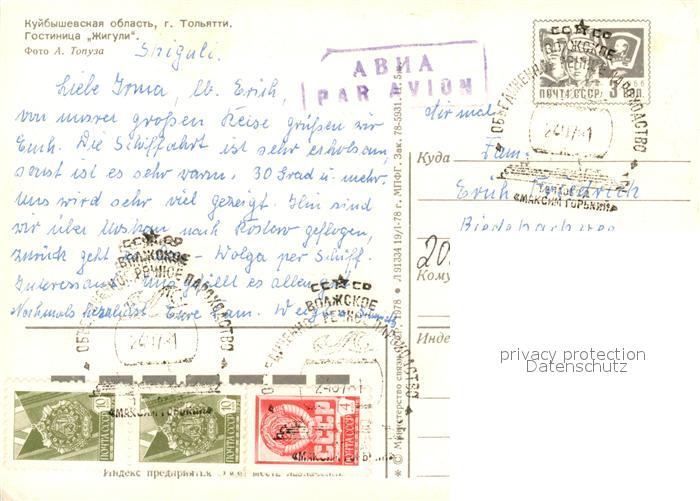 Куйбышевская область, г. Тольятти.
Гостиница „Жигули“.
Фото А. Топуза
Shiguli.
АВИА
PAR AVION
Liebe Irma, lb. Erich,
von unserer großen Reise grüßen wir
Euch. Die Schiffahrt ist sehr erholsam,
sonst ist es sehr warm, 30 Grad u. mehr.
Uns wird sehr viel gezeigt. Hin sind
wir über Moskau nach Rostow geflogen,
zurück geht Wolga per Schiff.
Interessant und gefällt es allen
Nochmals herzlichst Eure Fam.
СССР
ВОЛЖСКОЕ
ОБЪЕДИНЕННОЕ РЕЧНОЕ ПАРОХОДСТВО
«МАКСИМ ГОРЬКИЙ»
ПОЧТА СССР
3 КОП.
Куда
Fam.
Erich
20
Кому
Инде
© Министерство связи 1978 * Л 91334 19/I-78 г. МПФГ. Зак. 78-5931.
СССР
ВОЛЖСКОЕ
РЕЧНОЕ ПАРОХОДСТВО
«МАКСИМ ГОРЬКИЙ»
СССР
ВОЛЖСКОЕ
ОБЪЕДИНЕННОЕ РЕЧНОЕ ПАРОХОДСТВО
«МАКСИМ ГОРЬКИЙ»
10
ПОЧТА СССР
10
ПОЧТА СССР
4
СССР
ПОЧТА СССР
Индекс предприятия связи места назначения
privacy protection
Datenschutz